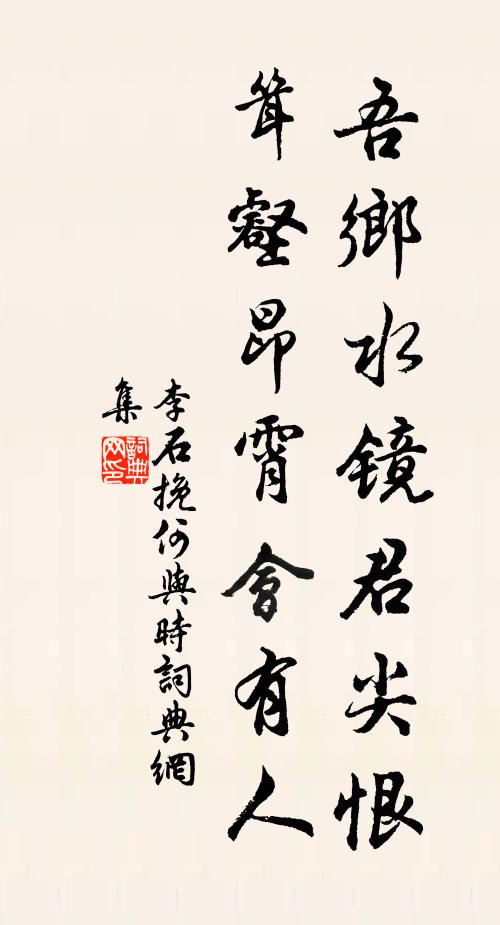 吾鄉水鏡君尖恨
耸壑昂霄會有人
李石挽何與時詞典網
集
詞典網印